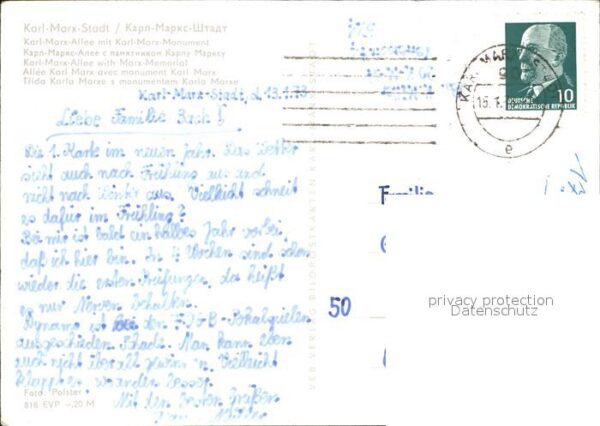 Karl-Marx-Stadt / Карл-Маркс-Штадт
Karl-Marx-Allee mit Karl-Marx-Monument
Карл-Маркс-Алее с памятником Карлу Марксу
Karl-Marx-Allee with Marx-Memorial
Allée Karl Marx avec monument Karl Marx
Třída Karla Marxe s monumentem Karla Marxe
Karl-Marx-Stadt, d. 13.1.73
Liebe Familie
Die 1. Karte im neuen Jahr. Das Wetter
sieht auch nach Frühling aus und
nicht nach Winter aus. Vielleicht schneit
es dafür im Frühling?
Bei mir ist bald ein halbes Jahr vorbei
daß ich hier bin. In 4 Wochen sind schon
wieder die ersten Prüfungen, das heißt
es nur Nerven behalten.
Dynamo ist bei den FDGB-Pokalspielen
ausgeschieden. Schade. Man kann eben
auch nicht überall gewinnen. Vielleicht
klappt es woanders besser.
Mit den besten Grüßen
Foto: Polster
816 EVP -,20 M
VEB VERLAG BILDPOSTKARTEN
DEUTSCHE
DEMOKRATISCHE REPUBLIK
10
KARL-MARX-STADT
e
Familie
50
privacy protection
Datenschutz